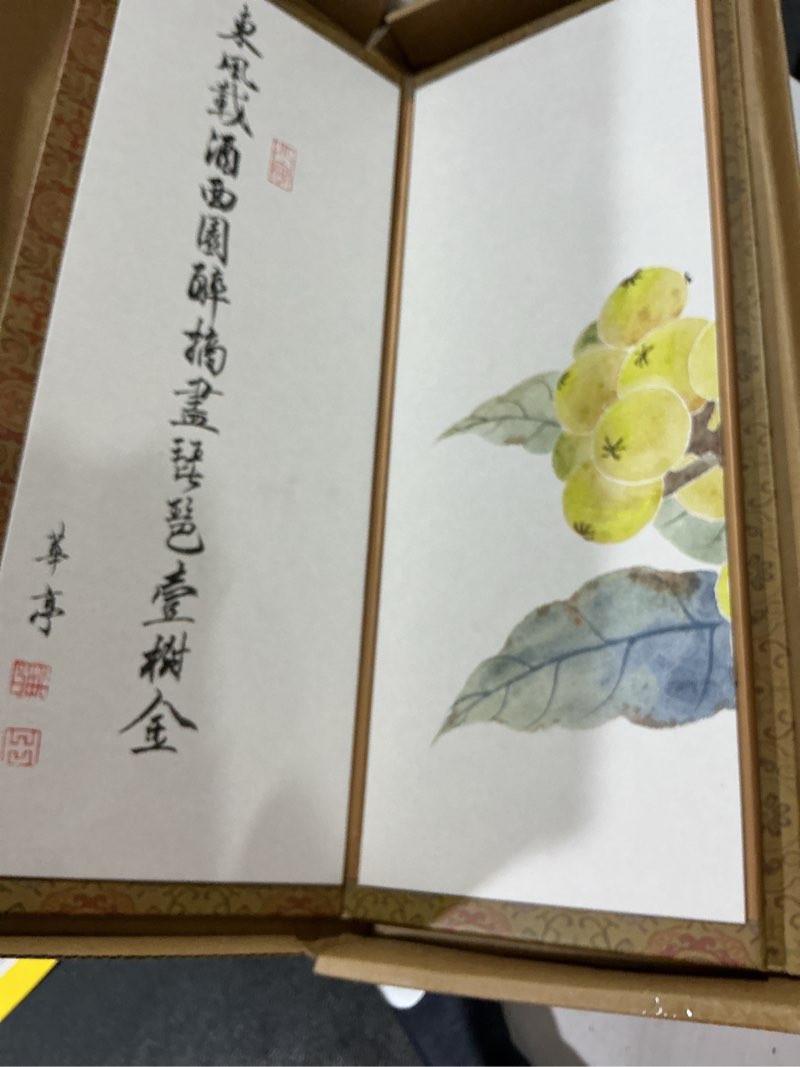 東風載酒西園醉摘盡琵琶壹樹金
華亭